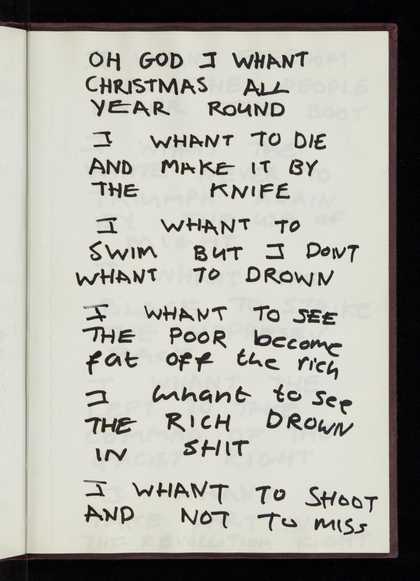 OH GOD I WHANT
CHRISTMAS ALL
YEAR ROUND
I WHANT TO DIE
AND MAKE IT BY
THE KNIFE
I WHANT TO
SWIM BUT I DONT
WHANT TO DROWN
I WHANT TO SEE
THE POOR become
fat off the rich
I whant to see
THE RICH DROWN
IN SHIT
I WHANT TO SHOOT
AND NOT TO MISS